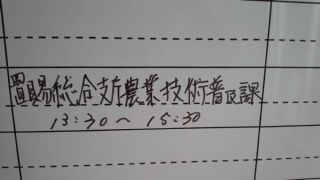 置賜総合支庁農業技術普及課
13:30〜15:30